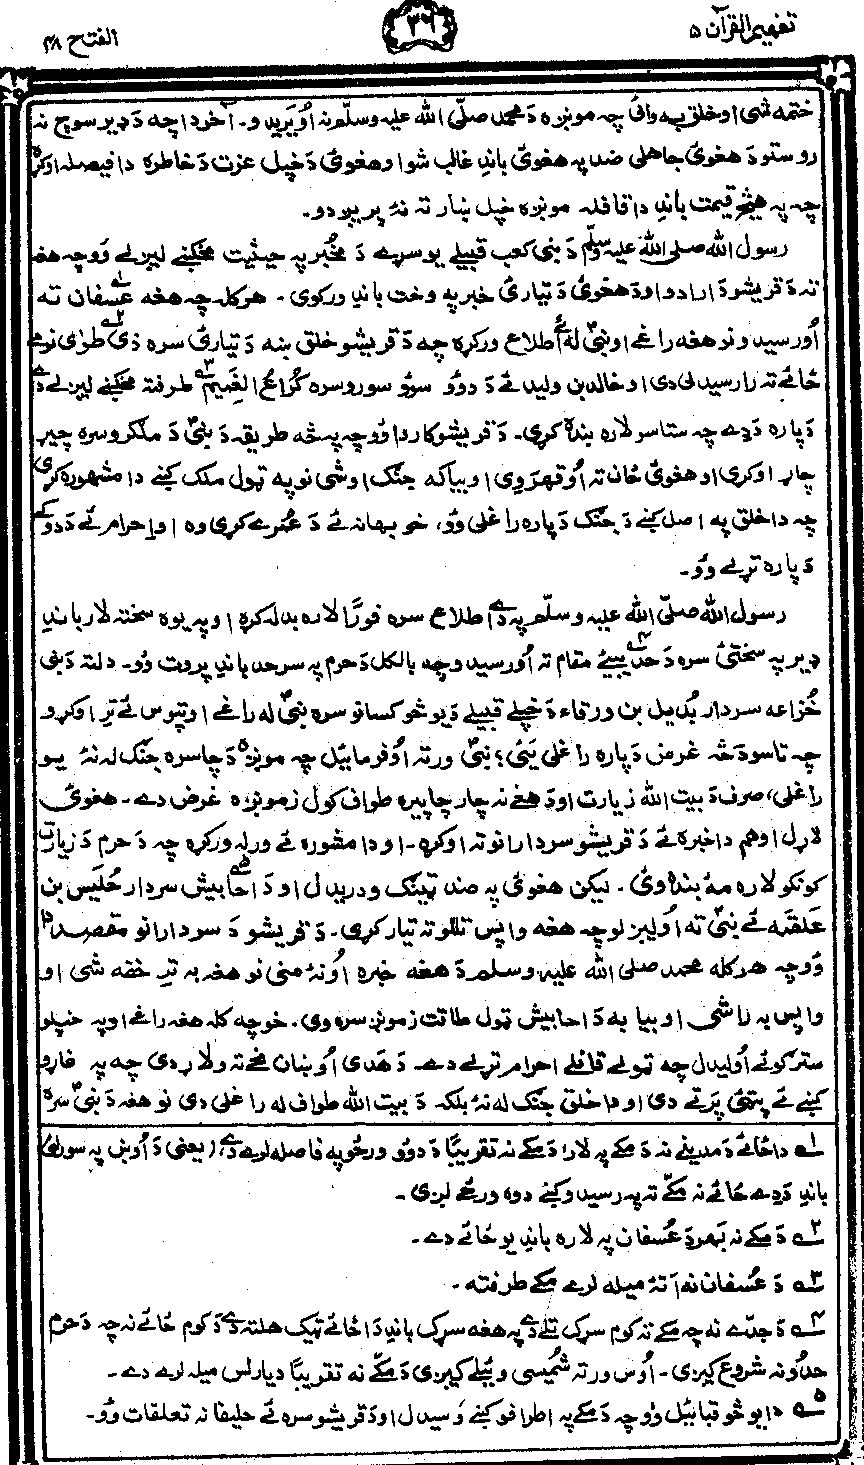 تفهیم القرآن ۵
۳۶
الفتح ۴۸
ختمه شی او خلق به وائی چه مونږه د محمد صلّی الله علیه وسلّم نه اُویریدو۔ آخر دا چه د ډیر سوچ نه
روستو د هغوئ جاهلی ضد په هغوئ باندِ غالب شو او هغوئ د خپل عزت دَ خاطره دا فیصله اوکړه
چه په هیڅ قیمت باندِ دا قافله مونږه خپل ښار ته نۀ پریږدو۔
رسول الله صلی الله علیه وسلّم دَ بنی کعب قبیلے یو سړے دَ مُخبر په حیثیت مخکښے لیږلے وۀ چه هغه
ته دَ قریشو دَ ارادو او دَ هغوئ دَ تیارئ خبر په وخت باندِ ورکوی۔ هرکله چه هغه عُسفان ته
اُورسیدو نو هغه راغے او نبیؐ له ئے اطلاع ورکړه چه دَ قریشو خلق ښه دَ تیارئ سره ذی طوٰی نومے
ځائے ته رارسیدلی دی او خالد بن ولید ئے دَ دوؤ سوؤ سورو سره کُراعُ الغَمِیم طرفته مخکښے لیږلے دے
دَ پاره دَ دے چه ستاسو لاره بنده کړی۔ دَ قریشو کار دا وۀ چه په څه طریقه دَ نبیؐ دَ ملګرو سره چیړ
چاړ اوکړی او هغوئ ځان ته اُوقهروی او بیا که جنګ اوشی نو په ټول ملک کښے دا مشهوره کړی
چه دا خلق په اصل کښے دَ جنګ دَ پاره راغلی وُو، خو بهانه ئے دَ عُمرے کړی وه او احرام ئے دَ دوکے
دَ پاره تړلے وُو۔
رسول الله صلّی الله علیه وسلّم په دے اطلاع سره فورًا لاره بدله کړه او په یوه سخته لار باندِ
ډیر په سختئ سره دَ حدیبیئے مقام ته اُورسید و چه بالکل دَ حرم په سرحد باندِ پروت وُو۔ دلته دَ بنی
خُزاعه سردار بُدیل بن ورقاء دَ خپلے قبیلے دَ یو څو کسانو سره نبیؐ له راغے او تپوس ئے تر اوکړو
چه تاسو دَ څه غرض دَ پاره راغلی یئی؟ نبیؐ ورته اُوفرمائیل چه مونږه دَ چا سره جنګ له نۀ یو
راغلی، صرف دَ بیت الله زیارت او دَ هغے نه چارچاپیره طواف کول زمونږه غرض دے۔ هغوئ
لاړل او هم دا خبره ئے دَ قریشو سردارانو ته اوکړه۔ او دا مشوره ئے ورله ورکړه چه دَ حرم دَ زیارت
کونکو لاره مۀ بندوئ۔ لیکن هغوئ په ضد ټینګ ودریدل او دَ احابیش سردار حُلَیس بن
علقمه ئے نبیؐ ته اُولیږلو چه هغه واپس تللو ته تیار کړی۔ دَ قریشو دَ سردارانو مقصد دا
وۀ چه هرکله محمد صلی الله علیه وسلم دَ هغه خبره اُونۀ منی نو هغه به ترِ خفه شی او
واپس به راشی او بیا به دَ احابیش ټول طاقت زمونږ سره وی۔ خو چه کله هغه راغے او په خپلو
سترګو ئے اُولیدل چه ټولے قافلے احرام تړلے دے۔ دَ هَدی اُوښان مخے ته ولاړ دی چه په غاړو
کښے ئے پټئ پرتے دی او دا خلق جنګ له نۀ بلکه دَ بیت الله طواف له راغلی دی نو هغه دَ نبیؐ سره
۱ دا ځائے دَ مدینے نه دَ مکے په لار دَ مکے نه تقریبًا دَ دوؤ ورځو په فاصله لرے دے (یعنی دَ اُوښ په سورلئ
باندِ دَ دے ځائے نه مکّے ته په رسیدو کښے دوه ورځے لږی۔
۲ دَ مکے نه بهر دَ عُسفان په لاره باندِ یو ځائے دے۔
۳ دَ عُسفان نه اتۀ میله لرے مکے طرفته۔
۴ دَ جدّے نه چه مکے ته کوم سړک تلے دے په هغه سړک باندِ دا ځائے ټیک هلته دے دَ کوم ځائے نه چه دَ حرم
حدُود نه شروع کیږی۔ اُوس ورته شُمیسی وئیلے کیږی دَ مکے نه تقریبًا دیارلس میله لرے دے۔
۵ دا یو څو قبائیل وُو چه دَ مکے په اطرافو کښے وُسیدل او دَ قریشو سره ئے حلیفانه تعلقات وُو۔